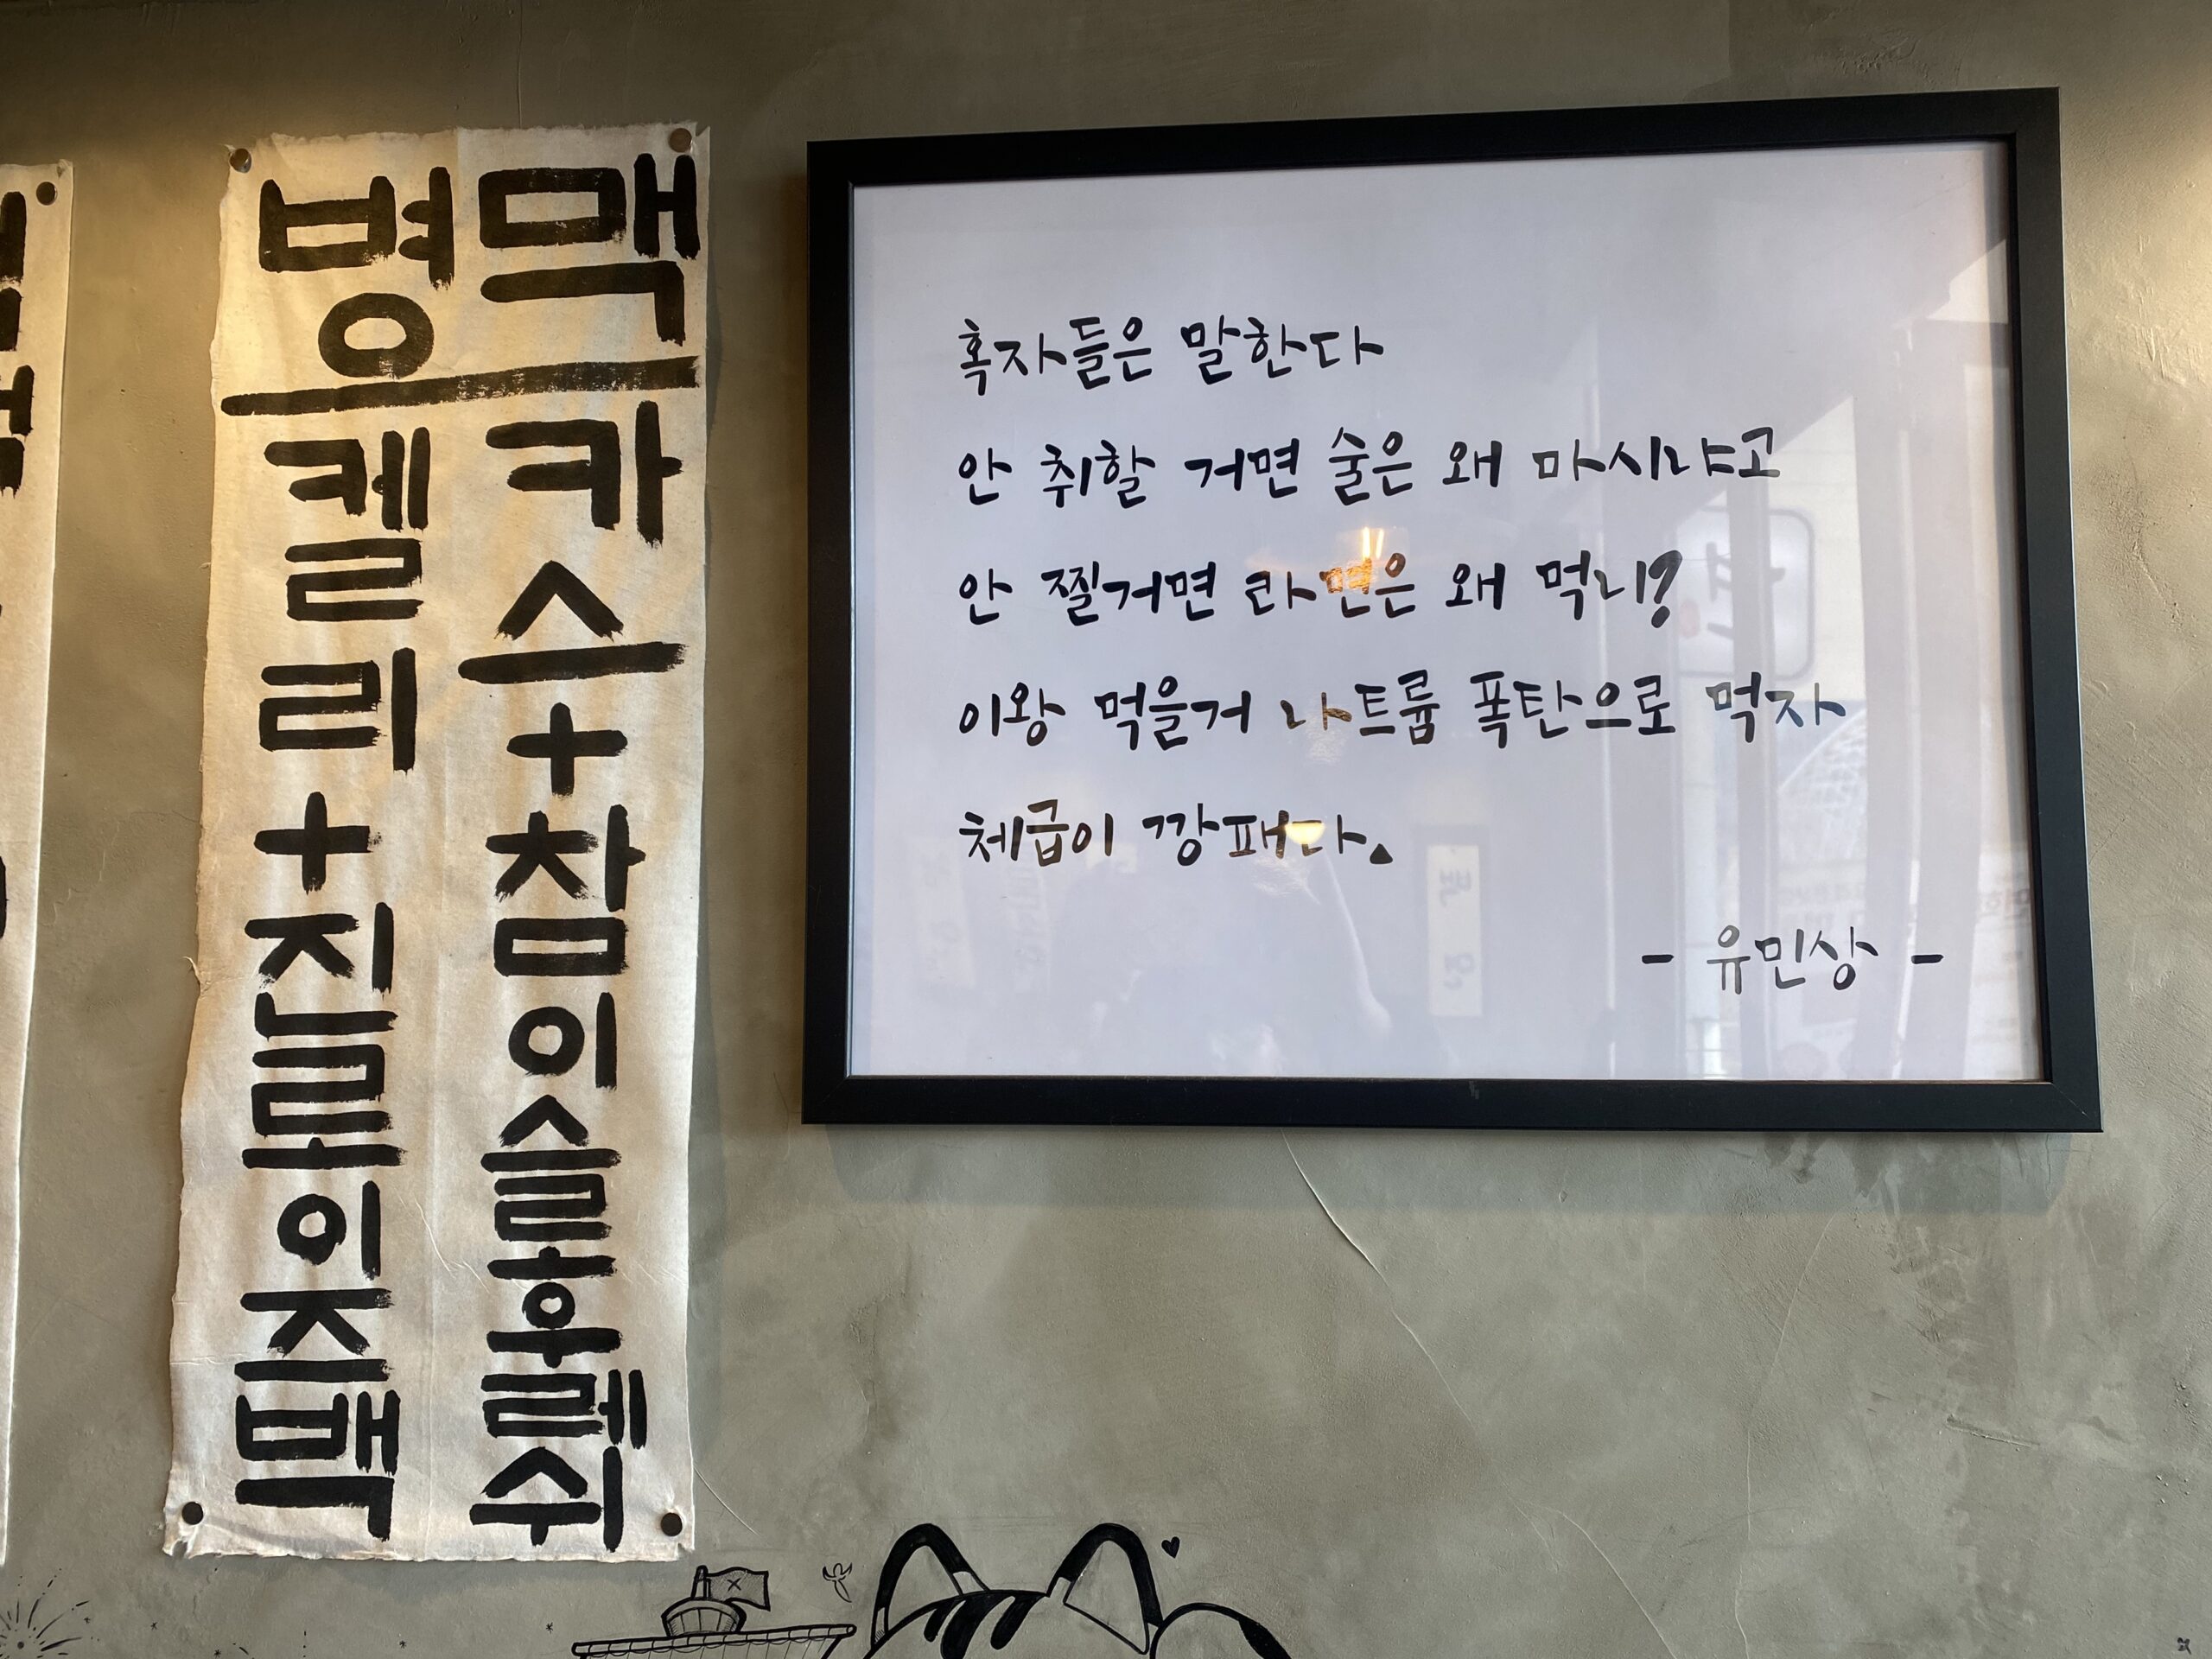 병맥
켈리+진로이즈백
카스+참이슬후레쉬
혹자들은 말한다
안 취할 거면 술은 왜 마시냐고
안 찔거면 라면은 왜 먹니?
이왕 먹을거 나트륨 폭탄으로 먹자
체급이 깡패다.
- 유민상 -